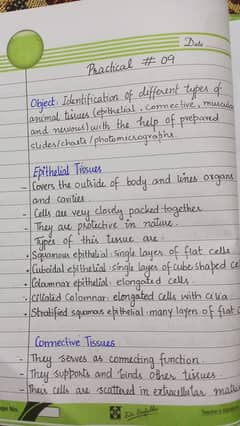 Date
Practical # 09
Object: Identification of different types of
animal tissues (epithelial, connective, muscula
and nervous) with the help of prepared
slides/charts/photomicrographs.
Epithelial Tissues
- Covers the outside of body and lines organs
and cavities.
- Cells are very closely packed together
- They are protective in nature.
- Types of this tissue are:
• Squamous epithelial: single layer of flat cells
• Cuboidal epithelial: single layer of cube shaped cel
• Columnar epithelial: elongated cells
• Ciliated Columnar: elongated cells with cilia
• Stratified squamous epithelial: many layers of flat c
Connective Tissues
- They serves as connecting function.
- They supports and binds other tissues.
- Their cells are scattered in extracellular matrix
ge No.
Teacher's Signature